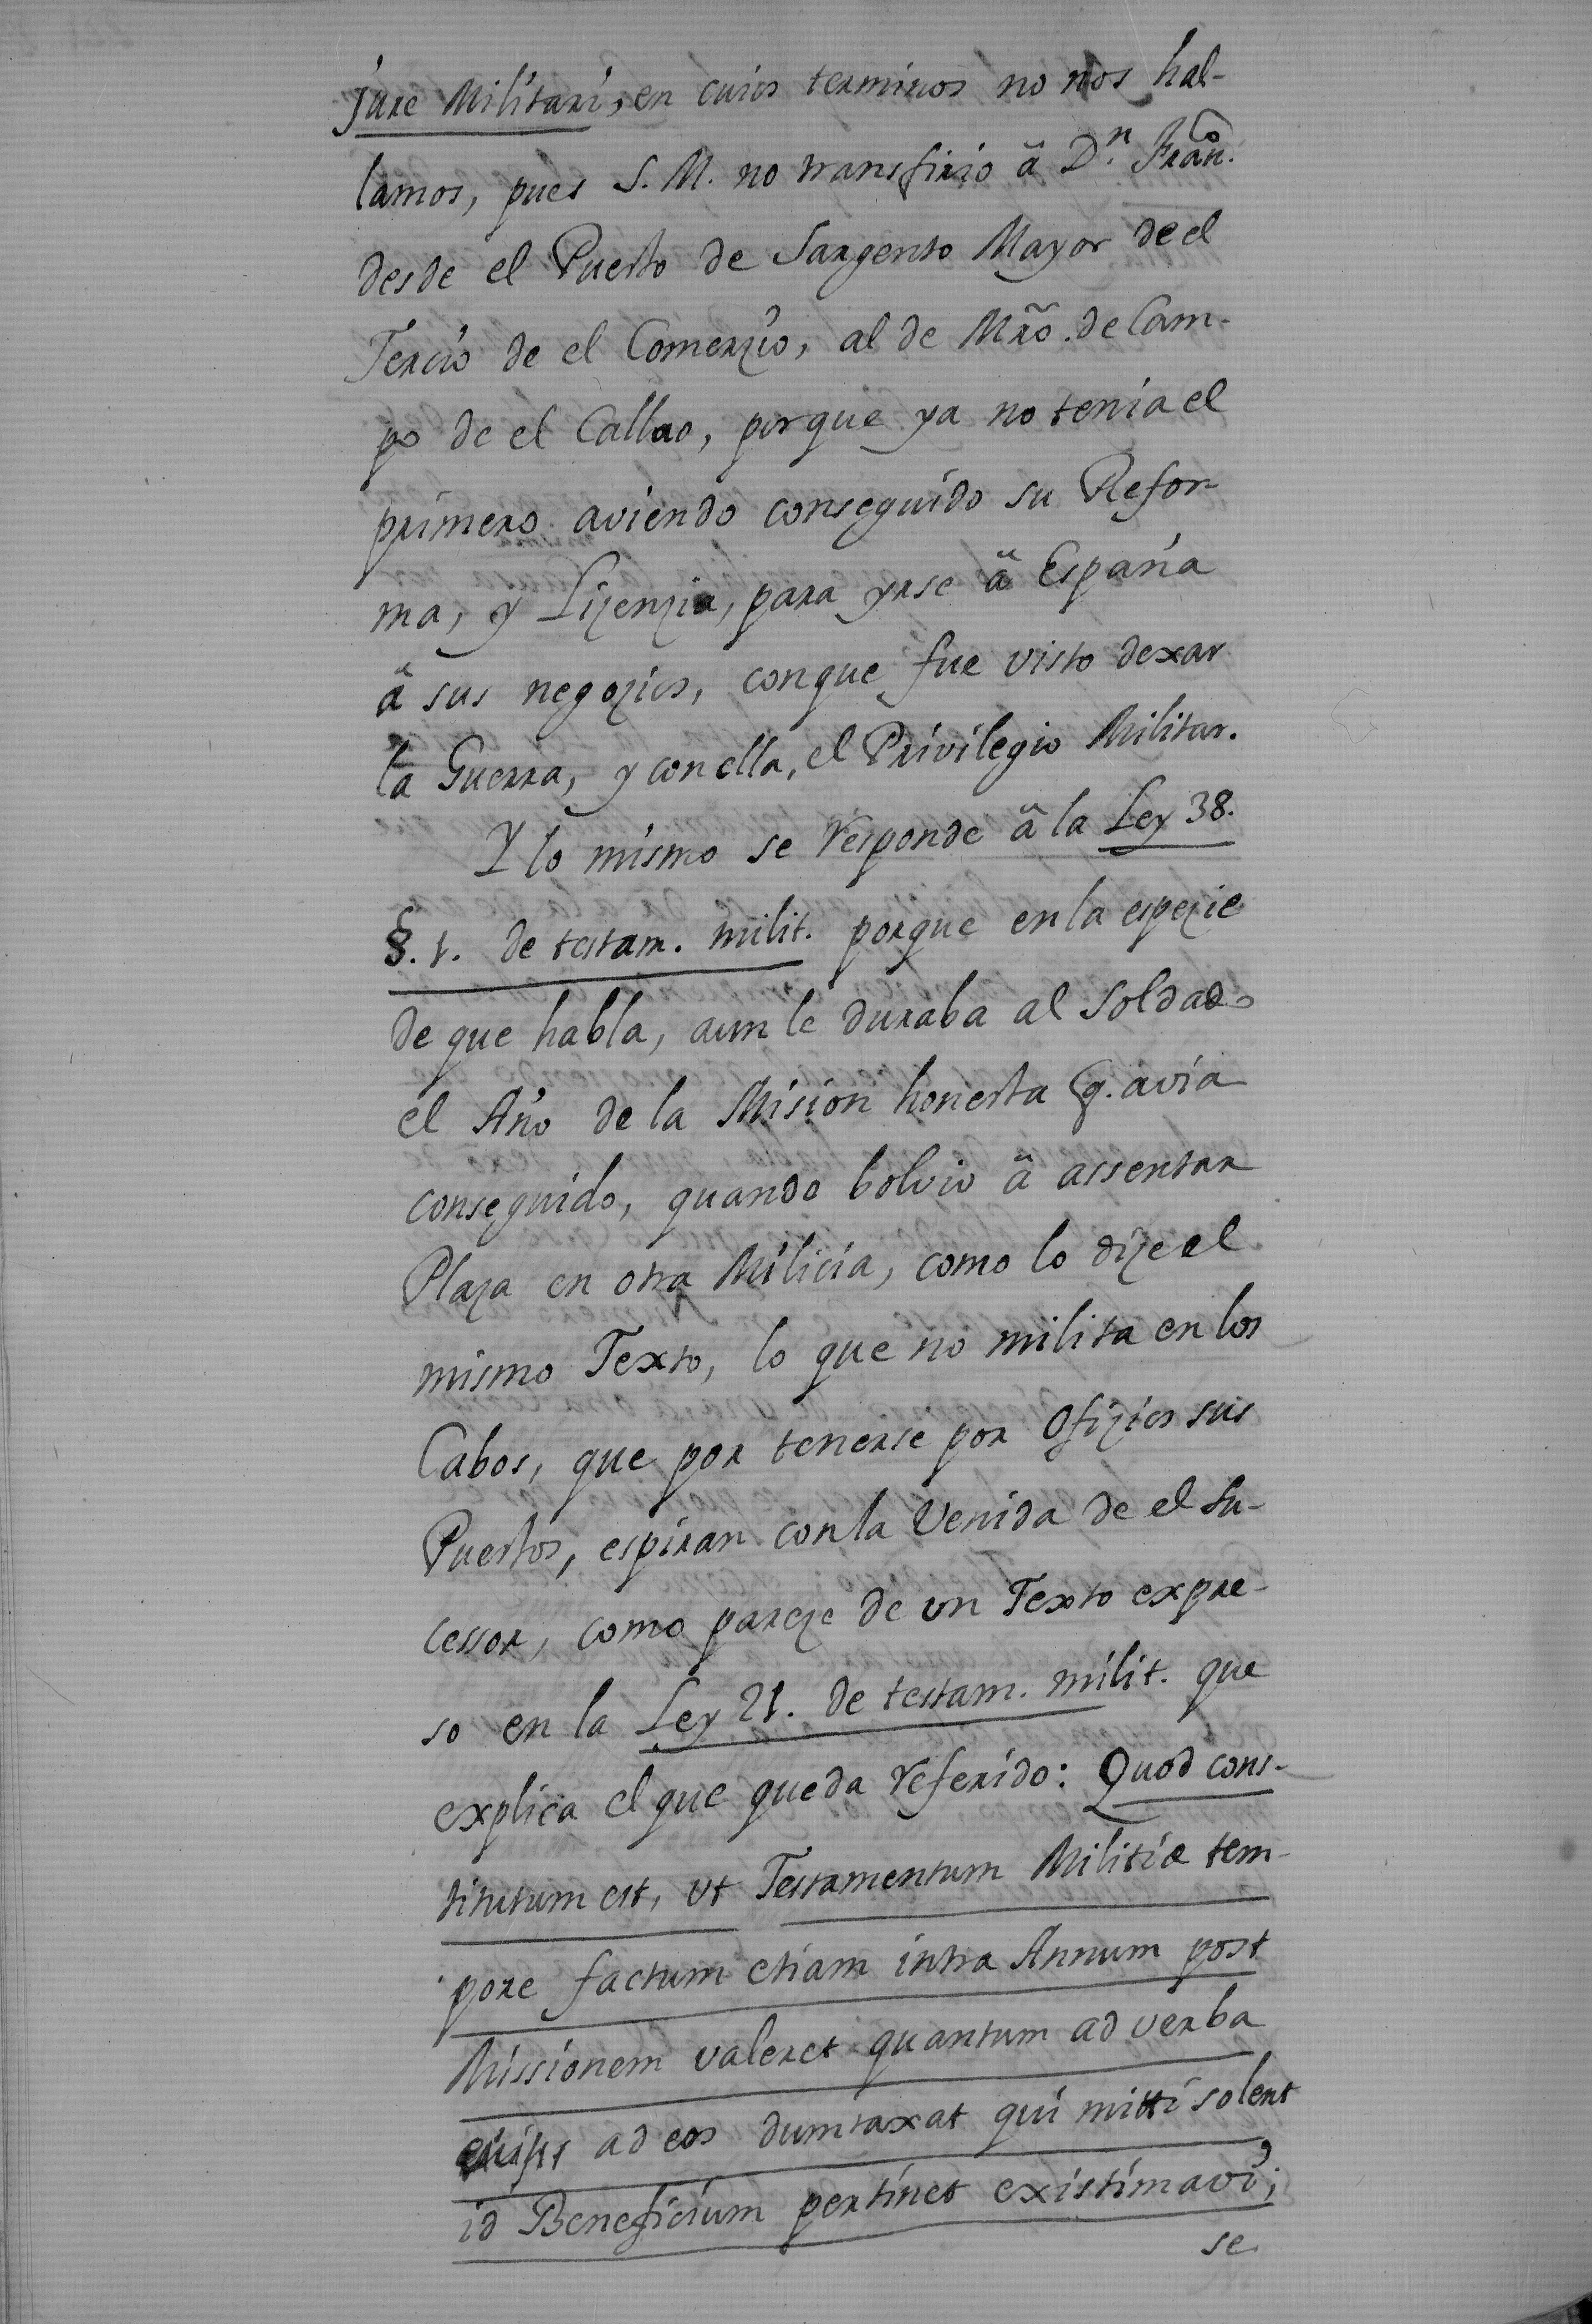 jure Militari, en cuios terminos no nos hal-
lamos, pues S. M. no transfirió â D.n Fran.co
desde el Puesto de Sargento Mayor de el
Tercio de el Comerzio, al de Mr̃o. de Cam-
po de el Callao, porque ya no tenia el
primero aviendo conseguido su Refor-
ma, y Lizenzia, para yrse â España
â sus negozios, conque fue visto dexar
la Guerra, y con ella, el Privilegio Militar.
Y lo mismo se responde â la Ley 38.
§. 1. de testam. milit. porque en la espezie
de que habla, aun le duraba al Soldado
el Año de la Mision honesta q. avia
conseguido, quando bolvio â assentar
Plaza en otra Milicia, como lo dize el
mismo Texto, lo que no milita en los
Cabos, que por tenerse por Ofizios sus
Puestos, espiran con la Venida de el Su-
cessor, como pareze de un Texto expre-
so en la Ley 21. de testam. milit. que
explica el que queda referido: Quod cons-
titutum est, ut Testamentum Militiæ tem-
pore factum etiam intra Annum post
Missionem valeret quantum ad verba
ad eos dumtaxat qui mitti solent
id Beneficium pertinet existimavi;
se